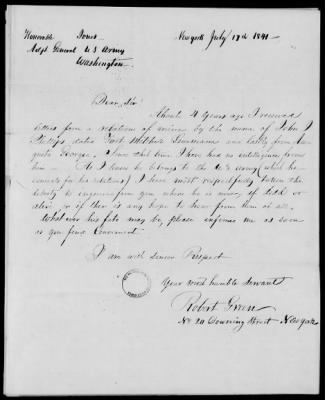 Honorable Jones
Adjt General U S Army
Washington
New york July 19th 1841
Dear Sir
About 4 years ago I received
letters from a relations of mine by the name of John J
Phillips dated Fort Mitchel Louisiana and lastly from Au-
gusta Georgia, since that time I have had no intelligence from
him - As I know he belongs to the U S army (which he
in his letters) I have most respectfully taken the
liberty to enquire from you where he is now, if dead or
alive, or if there is any hope to hear from him at all.
Whatever his fate may be, please inform me as soon
as you find Convenient.
I am with sincere Respect
Your most humble Servant
Robert Green
No 20 Downing Street New york